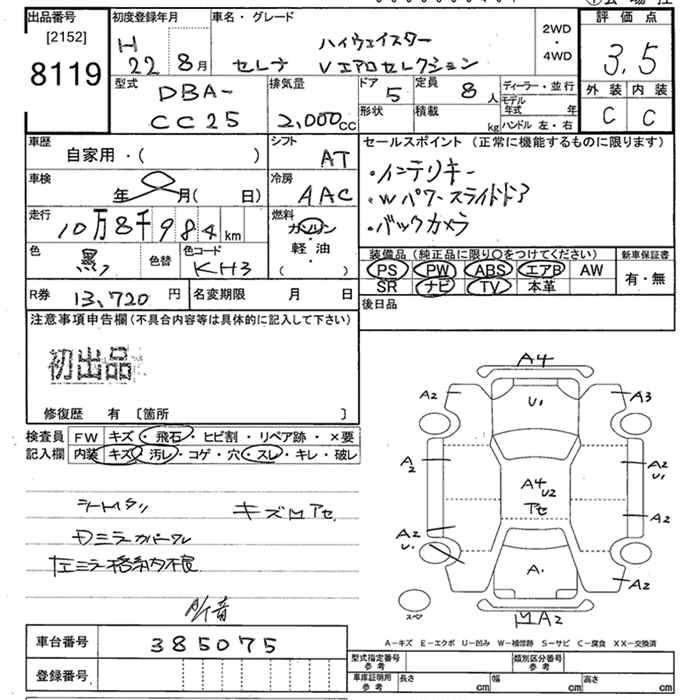 出品番号
[2152]
8119
初度登録年月
H
22 8月
車名・グレード
ハイウェイスター
セレナ Vエアロセレクション
2WD
・
4WD
評価点
3.5
外装 内装
C C
型式
DBA-
CC25
排気量
2,000cc
ドア
5
定員
8人
形状
積載
kg
ディーラー・並行
モデル年式 年
ハンドル 左・右
車歴
自家用・( )
シフト
AT
車検
年 月( 日)
冷房
AAC
走行
10万8千984km
燃料
ガソリン
軽油
( ・ )
色
黒
色替
色コード
KH3
R券
13,720円
名変期限 月 日
セールスポイント (正常に機能するものに限ります)
・インテリキー
・Wパワースライドドア
・バックカメラ
装備品 (純正品に限り○をつけてください)
PS PW ABS エアB AW
SR ナビ TV 本革
新車保証書
有・無
後日品
注意事項申告欄 (不具合内容等は具体的に記入して下さい)
初出品
修復歴 有 [箇所 ]
検査員
記入欄
FW キズ・飛石・ヒビ割・リペア跡・×要
内装 キズ・汚レ・コゲ・穴・スレ・キレ・破レ
左ミラー格納不良
A4
A2
U1
A3
A2
A2
U1
A4
U2
A2
A2
U1
A2
A1
A2
スペア
A2
A-キズ E-エクボ U-凹み W-補修跡 S-サビ C-腐食 XX-交換済
車台番号
385075
登録番号
型式指定番号
参考
類別区分番号
参考
車庫証明用
参考
長さ cm
幅 cm
高さ cm